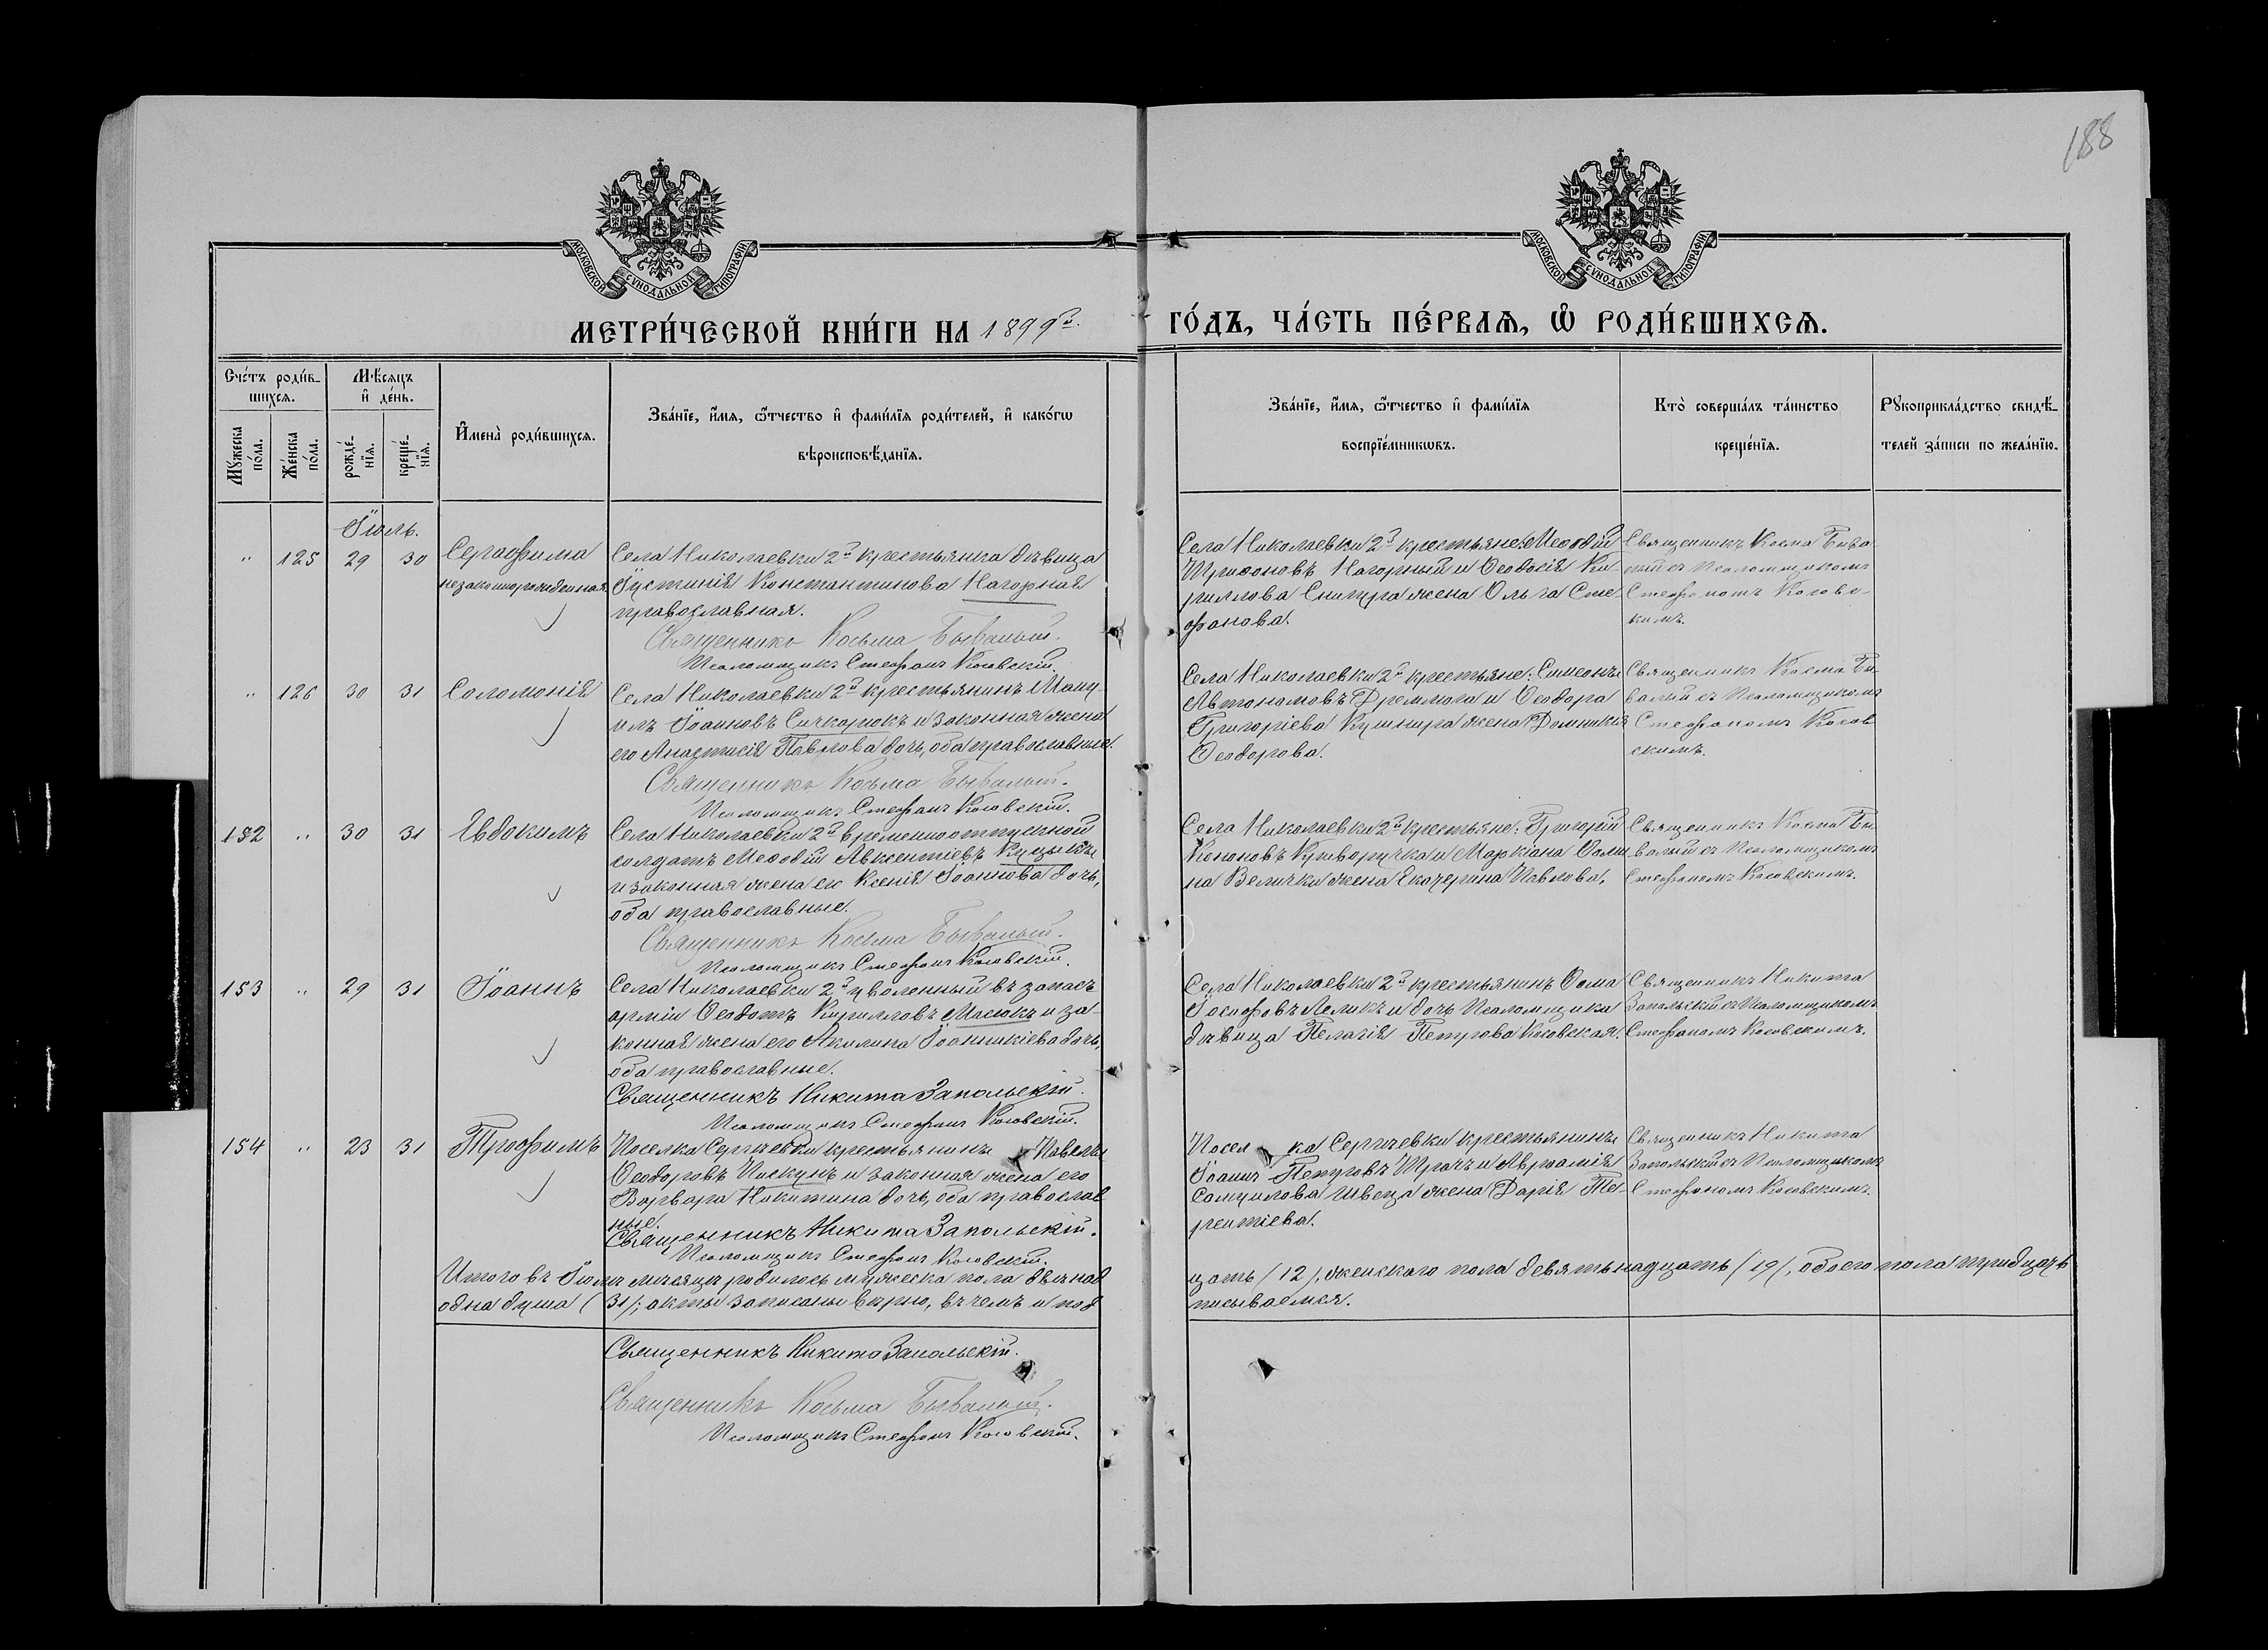 188
МОСКОВСКОЙ СѴНОДАЛЬНОЙ ТИПОГРАФІИ
МОСКОВСКОЙ СѴНОДАЛЬНОЙ ТИПОГРАФІИ
МЕТРИ́ЧЕСКОЙ КНИ́ГИ НА 1899й
ГО́ДЪ, ЧА́СТЬ ПЕ́РВАѦ, Ѽ РОДИ́ВШИХСѦ.
Сче́тъ роди́в-
шихсѧ.
Мѣ́сѧцъ
и҆ де́нь.
Мꙋ́жеска по́ла.
Же́нска по́ла.
рожде́-
нїѧ.
креще́-
нїѧ.
И҆мена̀ роди́вшихсѧ.
Зва́нїе, и҆́мѧ, ѻ҆́тчество и҆ фами́лїѧ роди́телей, и҆ како́гѡ
вѣроисповѣ́данїѧ.
Зва́нїе, и҆́мѧ, ѻ҆́тчество и҆ фами́лїѧ
воспрїе́мникѡвъ.
Кто̀ соверша́лъ та́инство
креще́нїѧ.
Рꙋкоприкла́дство свидѣ́-
телей за́писи по жела́нїю.
Іюль.
" 125 29 30 Серафима
незаконорожденная
Села Николаевки 2й крестьянка дѣвица
Іустинія Константинова Нагорная
православная.
Священникъ Косьма Бывалый.
Псаломщикъ Стефанъ Косовскій.
Села Николаевки 2й крестьяне: Меѳодій
Нагорный и Ѳеодосія Ки-
риллова жена Ольга Сте-
фанова.
Священникъ Косма Быва-
лый съ Псаломщикомъ
Стефаномъ Косовс-
кимъ.
" 126 30 31 Соломонія
Села Николаевки 2й крестьянинъ Ману-
илъ Іоанновъ Сичкарюкъ и законная жена
его Анастасія Павлова дочь, оба православные.
Священникъ Косьма Бывалый.
Псаломщикъ Стефанъ Косовскій.
Села Николаевки 2й крестьяне: Симеонъ
Автономовъ Дремлюга и Ѳеодора
Григоріева Кушнира жена Домникія
Ѳеодорова.
Священникъ Косма Бы-
валый съ Псаломщикомъ
Стефаномъ Косов
скимъ.
152 " 30 31 Евдокимъ
Села Николаевки 2й временноотпускной
солдатъ Меѳодій Авксентіевъ
и законная жена его Ксенія Іоаннова дочь,
оба православные.
Священникъ Косьма Бывалый.
Псаломщикъ Стефанъ Косовскій.
Села Николаевки 2й крестьяне: Григорій
Кононовъ Криворучка и Маркіана Ѳоми-
на Величка жена Екатерина Павлова.
Священникъ Косма Бы
валый съ Псаломщикомъ
Стефаномъ Косовскимъ.
153 " 29 31 Іоаннъ
Села Николаевки 2й уволенный въ запасъ
арміи Ѳеодотъ Кирилловъ Масюкъ и за-
конная жена его Акилина Іоанникіева дочь,
оба православные.
Священникъ Никита Запольскій.
Псаломщикъ Стефанъ Косовскій.
Села Николаевки 2й крестьянинъ Ѳома
Іосифовъ Лемикъ и дочь Псаломщика
дѣвица Пелагія Петрова Косовская.
Священникъ Никита
Запольскій съ Псаломщикомъ
Стефаномъ Косовскимъ.
154 " 23 31 Трофимъ
Поселка Сергѣевки крестьянинъ Павелъ
Ѳеодоровъ Пискунъ и законная жена его
Варвара Никитина дочь, оба православ
ные.
Священникъ Никита Запольскій.
Псаломщикъ Стефанъ Косовскій.
Посел ка Сергѣевки крестьянинъ
Іоаннъ Петровъ и Авраамія
Самуилова Швеца жена Дарія Те-
рентіева.
Священникъ Никита
Запольскій съ Псаломщикомъ
Стефаномъ Косовскимъ.
Итого въ Іюлѣ мѣсяцѣ родилось мужеска пола двѣнад
цать /12/, женскаго пола девятьнадцать /19/, обоего пола тридцать
одна душа (31); акты записаны вѣрно, въ чемъ и под
писываемся.
Священникъ Никита Запольскій.
Священникъ Косьма Бывалый.
Псаломщикъ Стефанъ Косовскій.